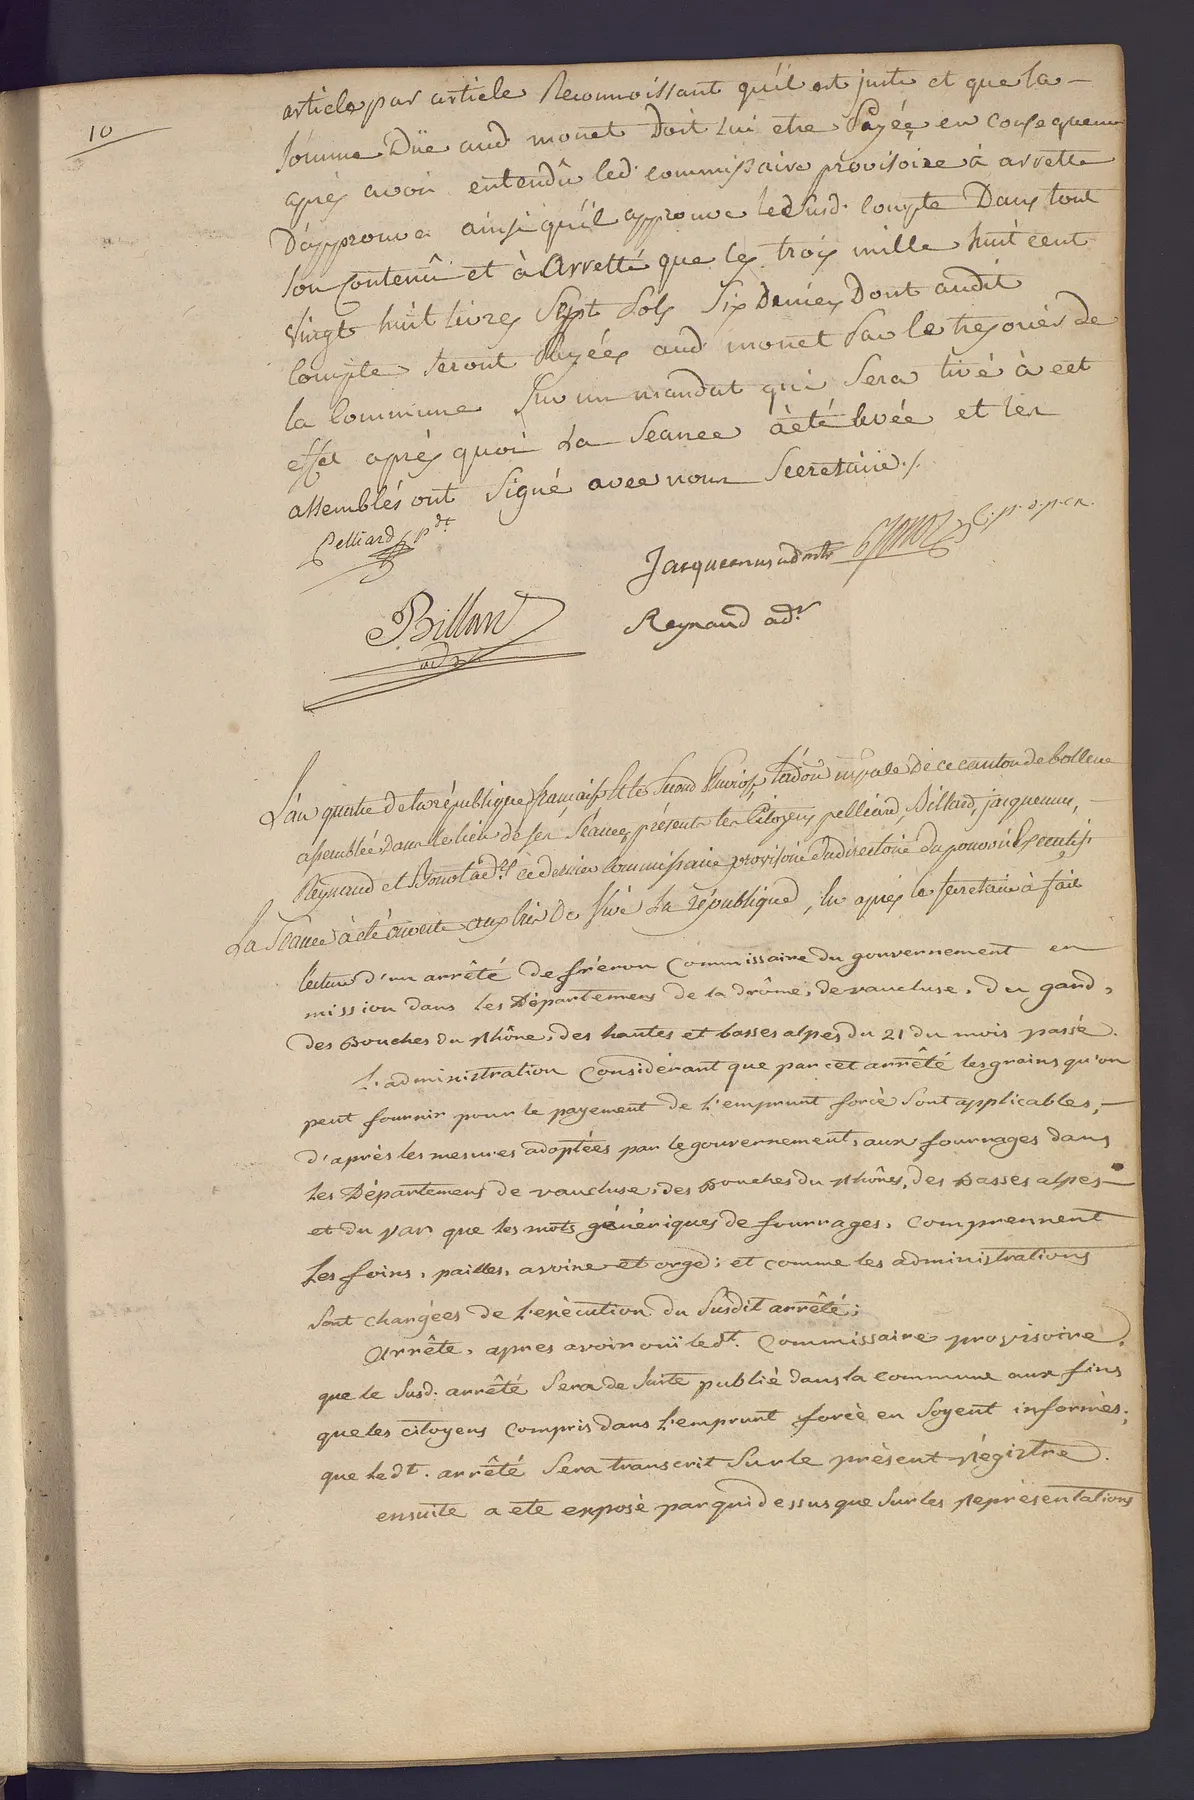 10
article par article Reconnoissant qu'il est juste et que la
Somme Düe aud monet Doit Lui etre Payée en consequence
aprés avoir entendû led. commissaire provisoire à arretté
D'approuver ainsi qu'il approuve led susd. compte Dans tout
Son contenû et à Arretté que les trois mille huit cent
vingt huit livres Sept Sols Six Deniers Dont audit
Compte Seront Payées aud monet Par le tresorier de
la Commune Sur un mandat qui Sera tiré à cet
effet aprés quoi La Seance à été levée et les
assemblés ont Signé avec nous Secretaire ./.
Pelliard pdt
Jacquemus admtr
Billan
adr
Reynaud adr
L'an quatre de la république française et le Second Pluviose L'adon mpale de ce canton de bollene
assemblée dans le lieu de ses Séances, présents les Citoyens pelliard, Billard, jacquemus, -
Reynaud et Bonot ad.rs ce dernier Commissaire provisoire du directoire du pouvoir Executif.
La Séance à été ouverte aux cris De Vive La république, lu après le secretaire à fait
lecture d'un arrêté de fréron Commissaire du gouvernement en
mission dans les Départemens de la drôme, de vaucluse, du gard,
des Bouches du Rhône, des hautes et basses alpes du 21 du mois passé.
L'administration Considérant que par cet arrêté les grains qu'on
peut fournir pour le payement de l'emprunt forcé Sont applicables, -
d'après les mesures adoptées par le gouvernement, aux fourrages dans
les Départemens de vaucluse, des Bouches du Rhône, des Basses alpes -
et du var que les mots génériques de fourrages, Comprennent
Les foins, pailles, avoine et orge; et comme les administrations
Sont chargées de l'exécution du Susdit arrêté;
Arrête, après avoir ouï led.t Commissaire provisoire,
que le Susd. arrêté Sera de Suite publié dans la commune aux fins
que les citoyens Compris dans L'emprunt forcé en Soyent informés;
que led.t arrêté Sera transcrit Sur le présent Régistre.
ensuite a été exposé par qui dessus que Sur les Représentations